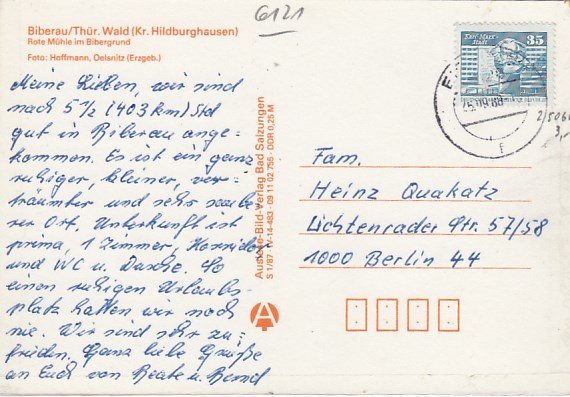 6121
Biberau/Thür. Wald (Kr. Hildburghausen)
Rote Mühle im Bibergrund
Foto: Hoffmann, Oelsnitz (Erzgeb.)
Meine Lieben, wir sind
nach 5 1/2 (403 km) Std
gut in Biberau ange-
kommen. Es ist ein ganz
ruhiger, kleiner, ver-
träumter und sehr saube-
rer Ort. Unterkunft ist
prima, 1 Zimmer, Korridor
und WC u. Dusche. So
einen ruhigen Urlaubs-
platz hatten wir noch
nie. Wir sind sehr zu-
frieden. Ganz liebe Grüße
an Euch von Beate u. Bernd
Auslese-Bild-Verlag Bad Salzungen
S 1/87 IV-14-483 · 09 11 02 756 · DDR 0,25 M
A
35
DDR
Fam.
Heinz Quakatz
Lichtenrader Str. 57/58
1000 Berlin 44